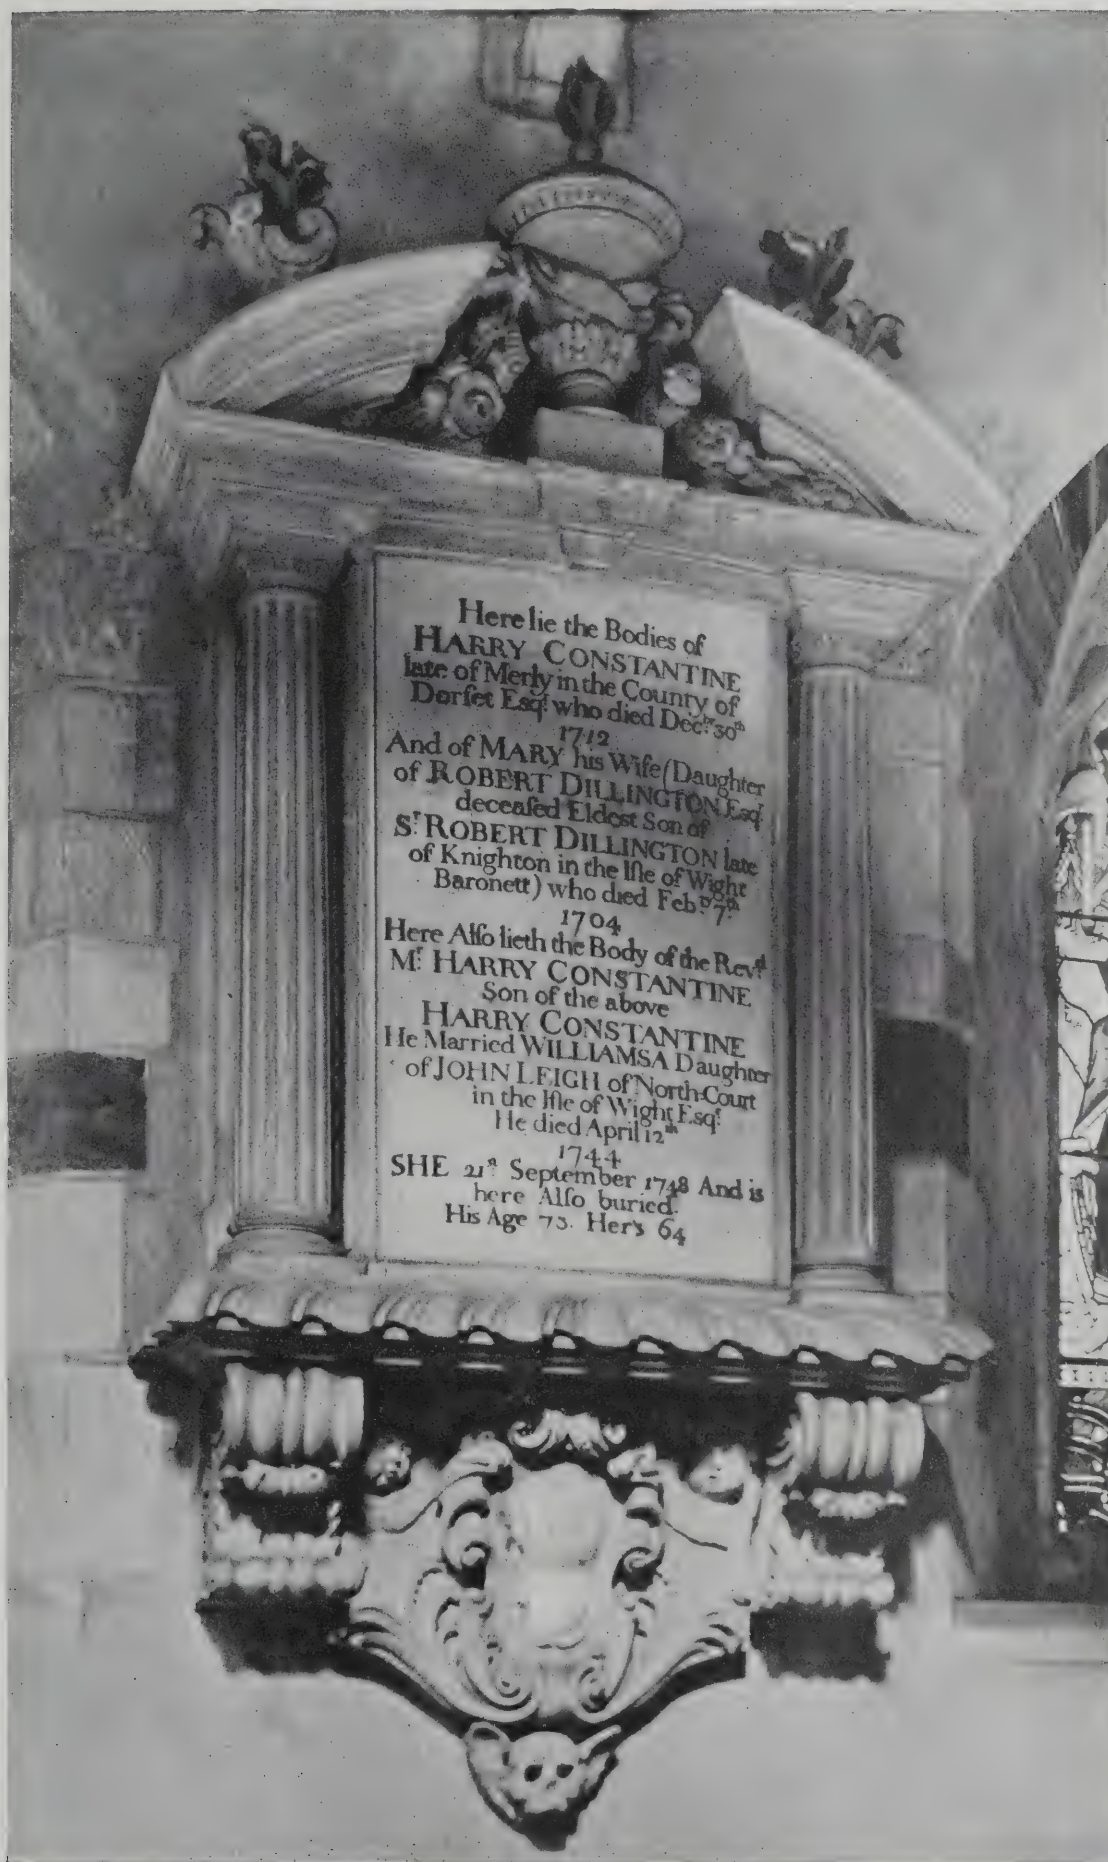 Here lie the Bodies of
HARRY CONSTANTINE
late of Merly in the County of
Dorſet Esqr. who died Decbr. 30th
1712
And of MARY his Wife (Daughter
of ROBERT DILLINGTON Esqr.
deceaſed Eldest Son of
Sr. ROBERT DILLINGTON late
of Knighton in the Iſle of Wight
Baronett) who died Feby. 7th
1704
Here Alſo lieth the Body of the Revd.
Mr. HARRY CONSTANTINE
Son of the above
HARRY CONSTANTINE
He Married WILLIAMSA Daughter
of JOHN LEIGH of North-Court
in the Iſle of Wight Esqr.
He died April 12th
1744
SHE 21st September 1748 And is
here Alſo buried.
His Age 73. Her's 64